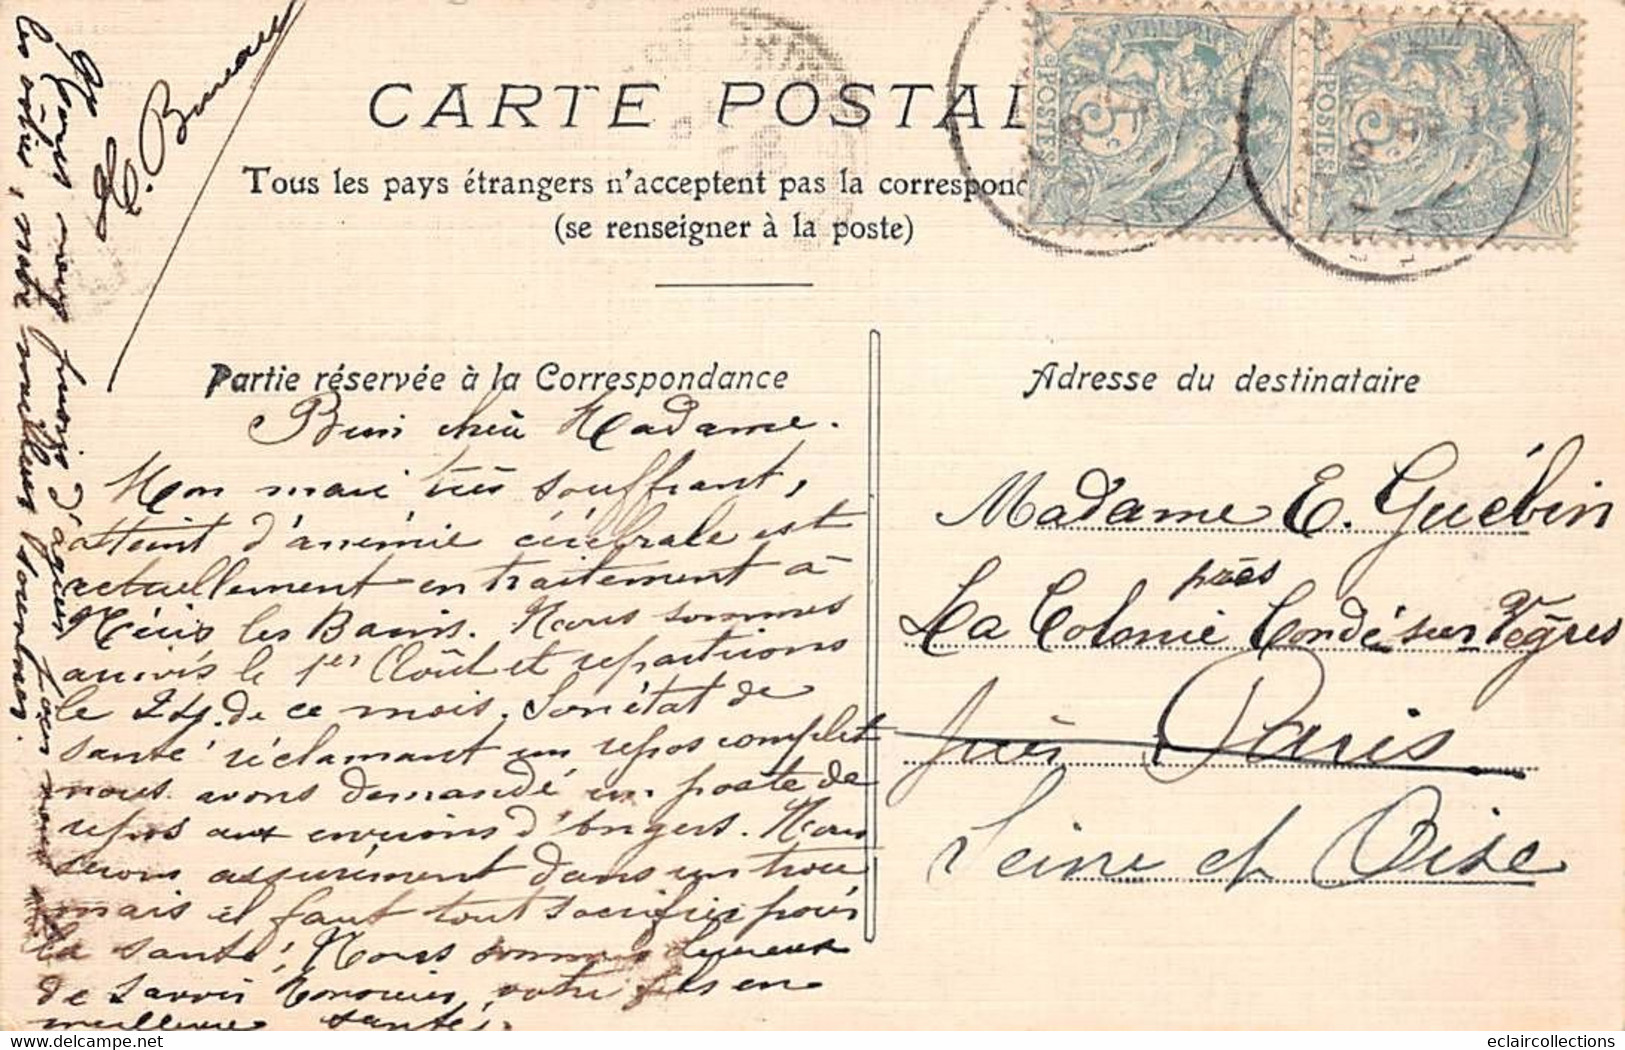 CARTE POSTAL
Tous les pays étrangers n'acceptent pas la correspon
(se renseigner à la poste)
POSTES
5
POSTES
5
Partie réservée à la Correspondance
Bien chère Madame.
Mon mari très souffrant,
atteint d'anémie cérébrale est
actuellement en traitement à
Néris les Bains. Nous sommes
arrivés le 1er Août et repartirons
le 24 de ce mois. Son état de
santé réclamant un repos complet
nous avons demandé un poste de
repos aux environs d'Angers. Nous
serons assurément dans un trou
mais il faut tout sacrifier pour
la santé! Nous sommes heureux
de savoir Monsieur votre fils en
meilleure santé.
nous puis d'agréer, pour vous
les vôtres, notre meilleur souvenir.
Adresse du destinataire
Madame E. Guébin
près
La Colonie Condé sur Vègres
près Paris
Seine et Oise
eclaircollections